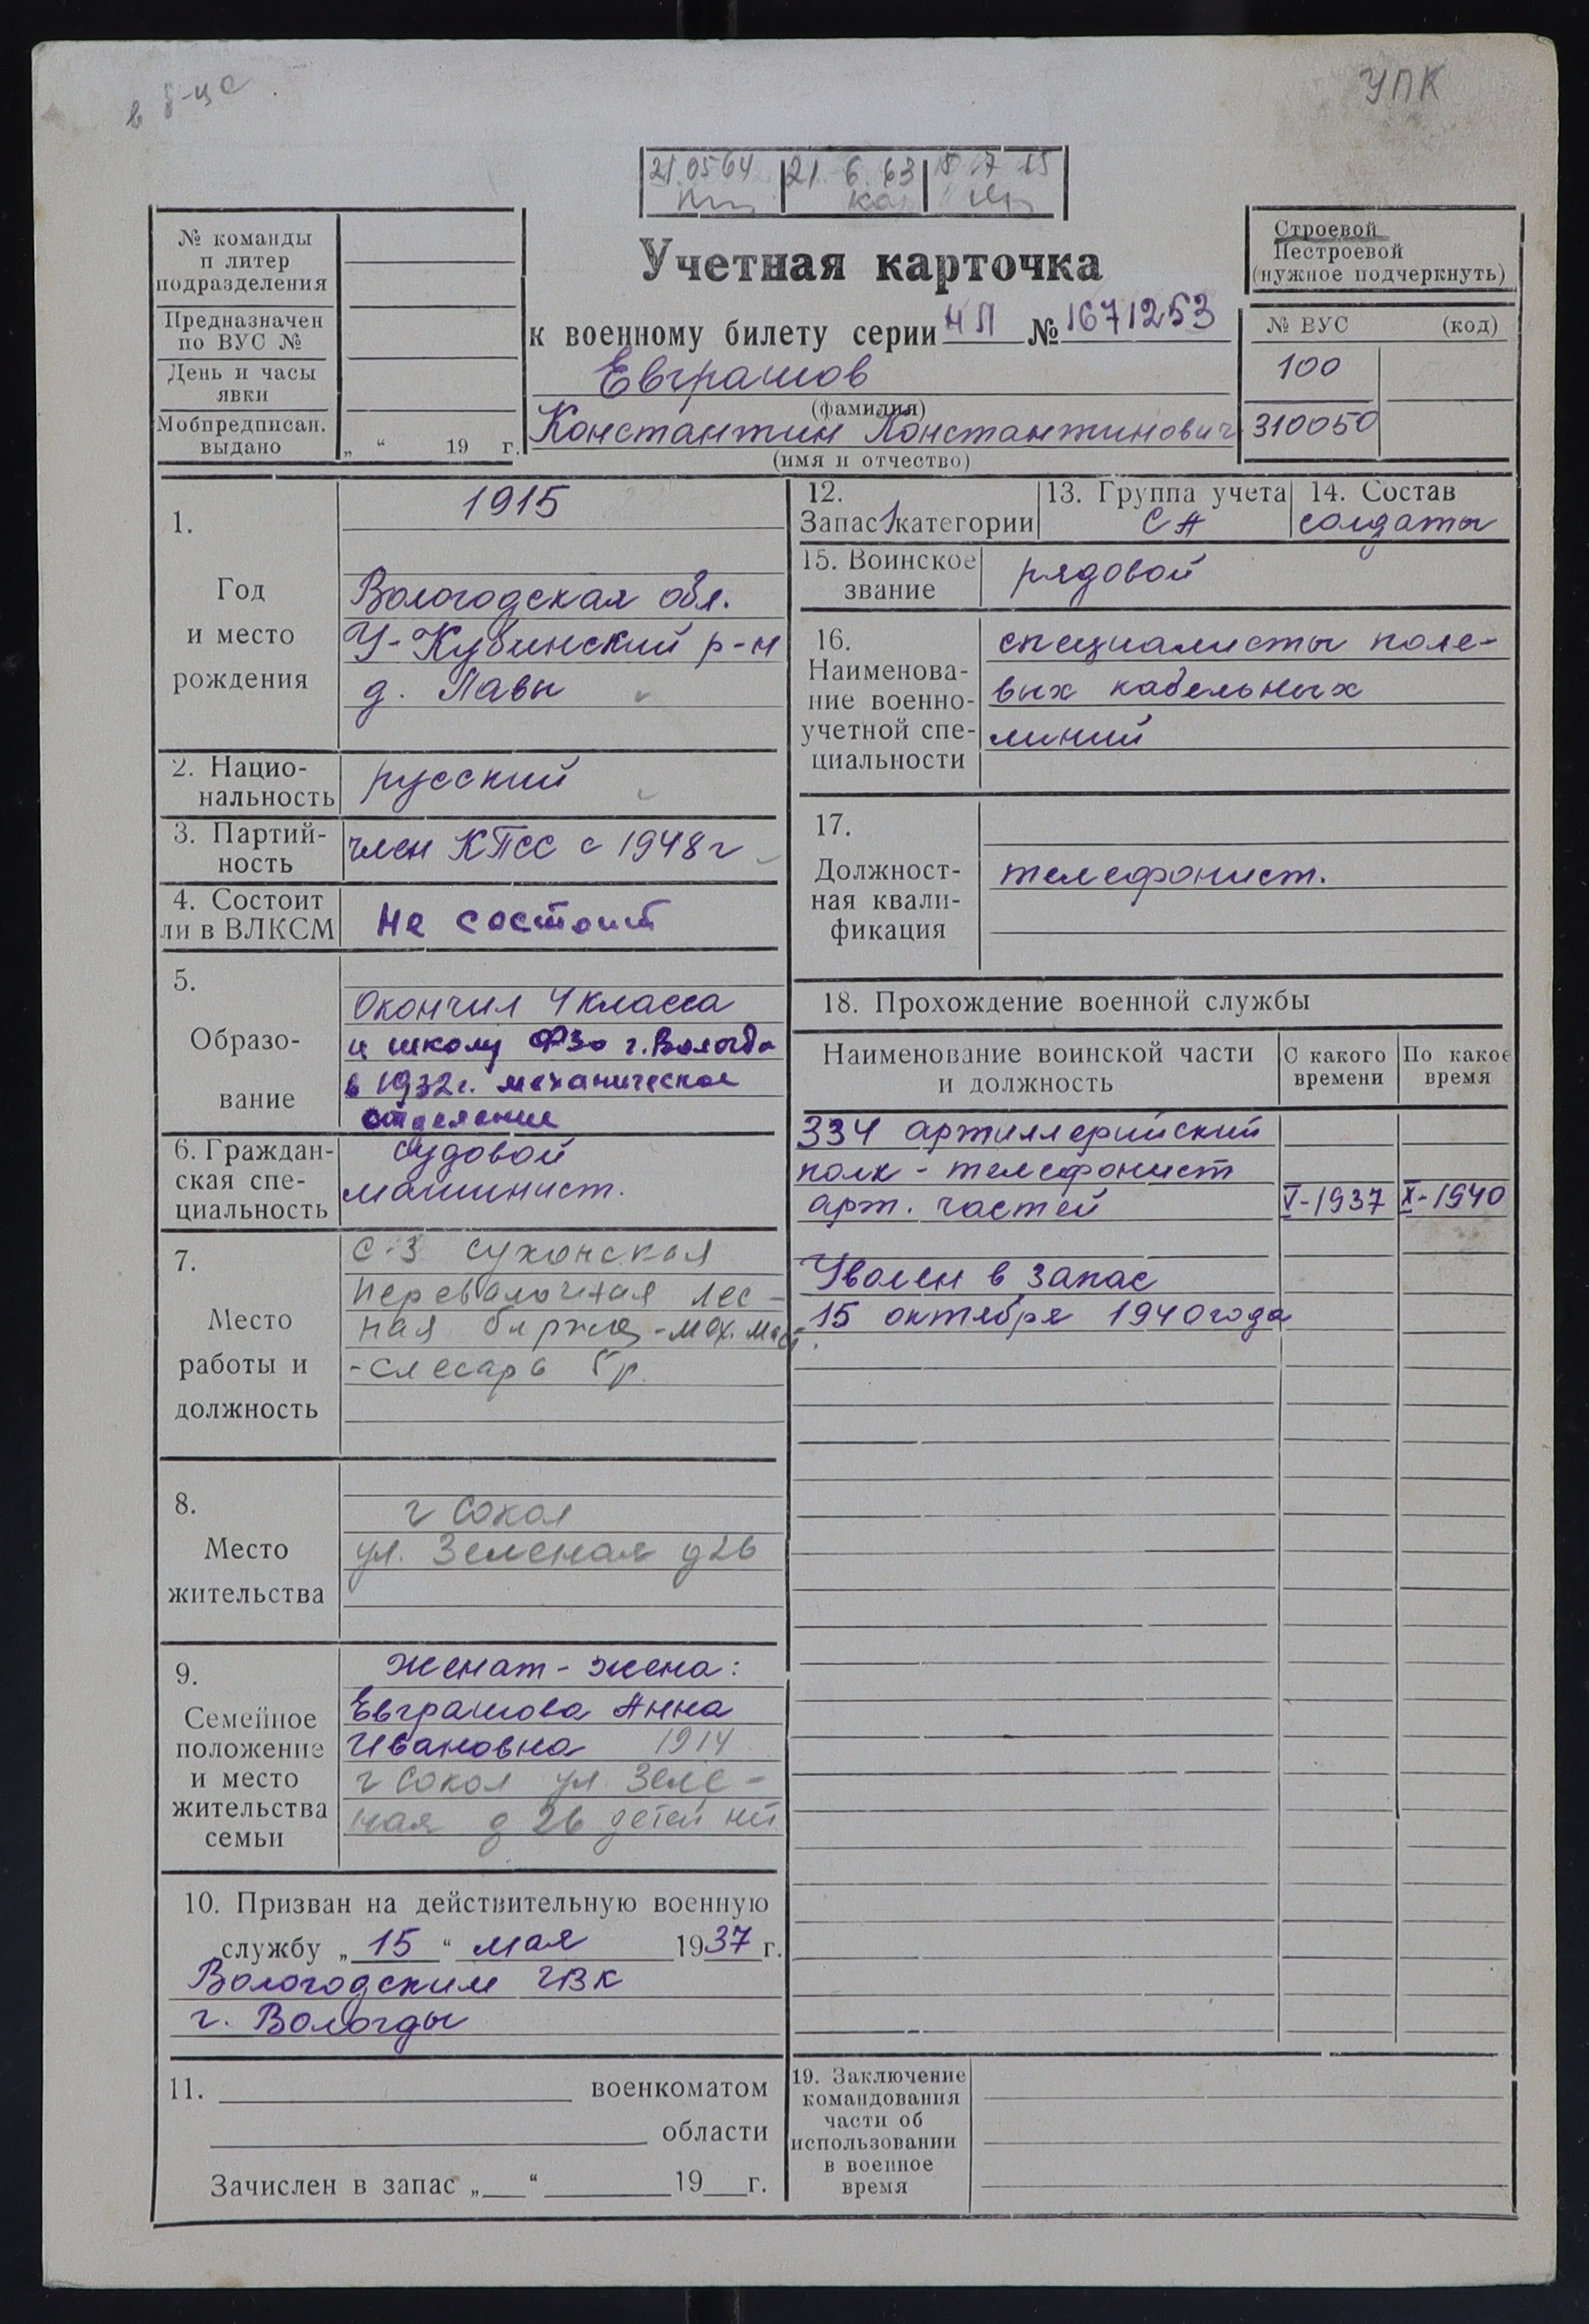 в б-це
УПК
21.05 64 21. 6. 63 18 17 65
№ команды
и литер
подразделения
Предназначен
по ВУС №
День и часы
явки
Мобпредписан.
выдано
„ “ 19 г.
Учетная карточка
к военному билету серии НП № 1671253
Евграшов
(фамилия)
Константин Константинович
(имя и отчество)
Строевой
Нестроевой
(нужное подчеркнуть)
№ ВУС (код)
100
310050
1.
Год
и место
рождения
1915
Вологодская обл.
У-Кубинский р-н
д. Лавы
2. Нацио-
нальность
русский
3. Партий-
ность
член КПСС с 1948 г
4. Состоит
ли в ВЛКСМ
Не состоит
5.
Образо-
вание
Окончил 4 класса
и школу ФЗО г. Вологда
в 1932 г. механическое
отделение
6. Граждан-
ская спе-
циальность
Судовой
машинист.
7.
Место
работы и
должность
с-з Сухонская
перевалочная лес-
ная биржа - мех. маст.
- слесарь 5 р.
8.
Место
жительства
г Сокол
ул. Зеленая д 26
9.
Семейное
положение
и место
жительства
семьи
Женат - жена:
Евграшова Анна
Ивановна 1914
г Сокол ул Зеле-
ная д 26 детей
10. Призван на действительную военную
службу „ 15 “ мая 1937 г.
Вологодским ГВК
г. Вологды
11. военкоматом
области
Зачислен в запас „ “ 19 г.
12.
Запас 1 категории
13. Группа учета
СА
14. Состав
солдаты
15. Воинское
звание
рядовой
16.
Наименова-
ние военно-
учетной спе-
циальности
специалисты поле-
вых кабельных
линий
17.
Должност-
ная квали-
фикация
телефонист.
18. Прохождение военной службы
Наименование воинской части
и должность
С какого
времени
По какое
время
334 артиллерийский
полк - телефонист
арт. частей V-1937 X-1940
Уволен в запас
15 октября 1940 года
19. Заключение
командования
части об
использовании
в военное
время